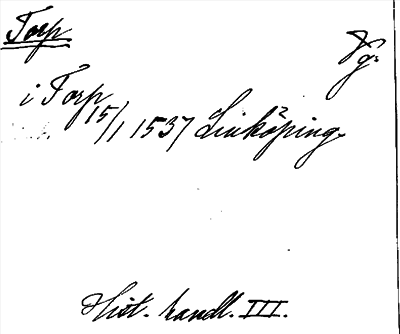 Torp
Vg.
i Torp
15/1 1537 Linköping.
Hist. handl. III.